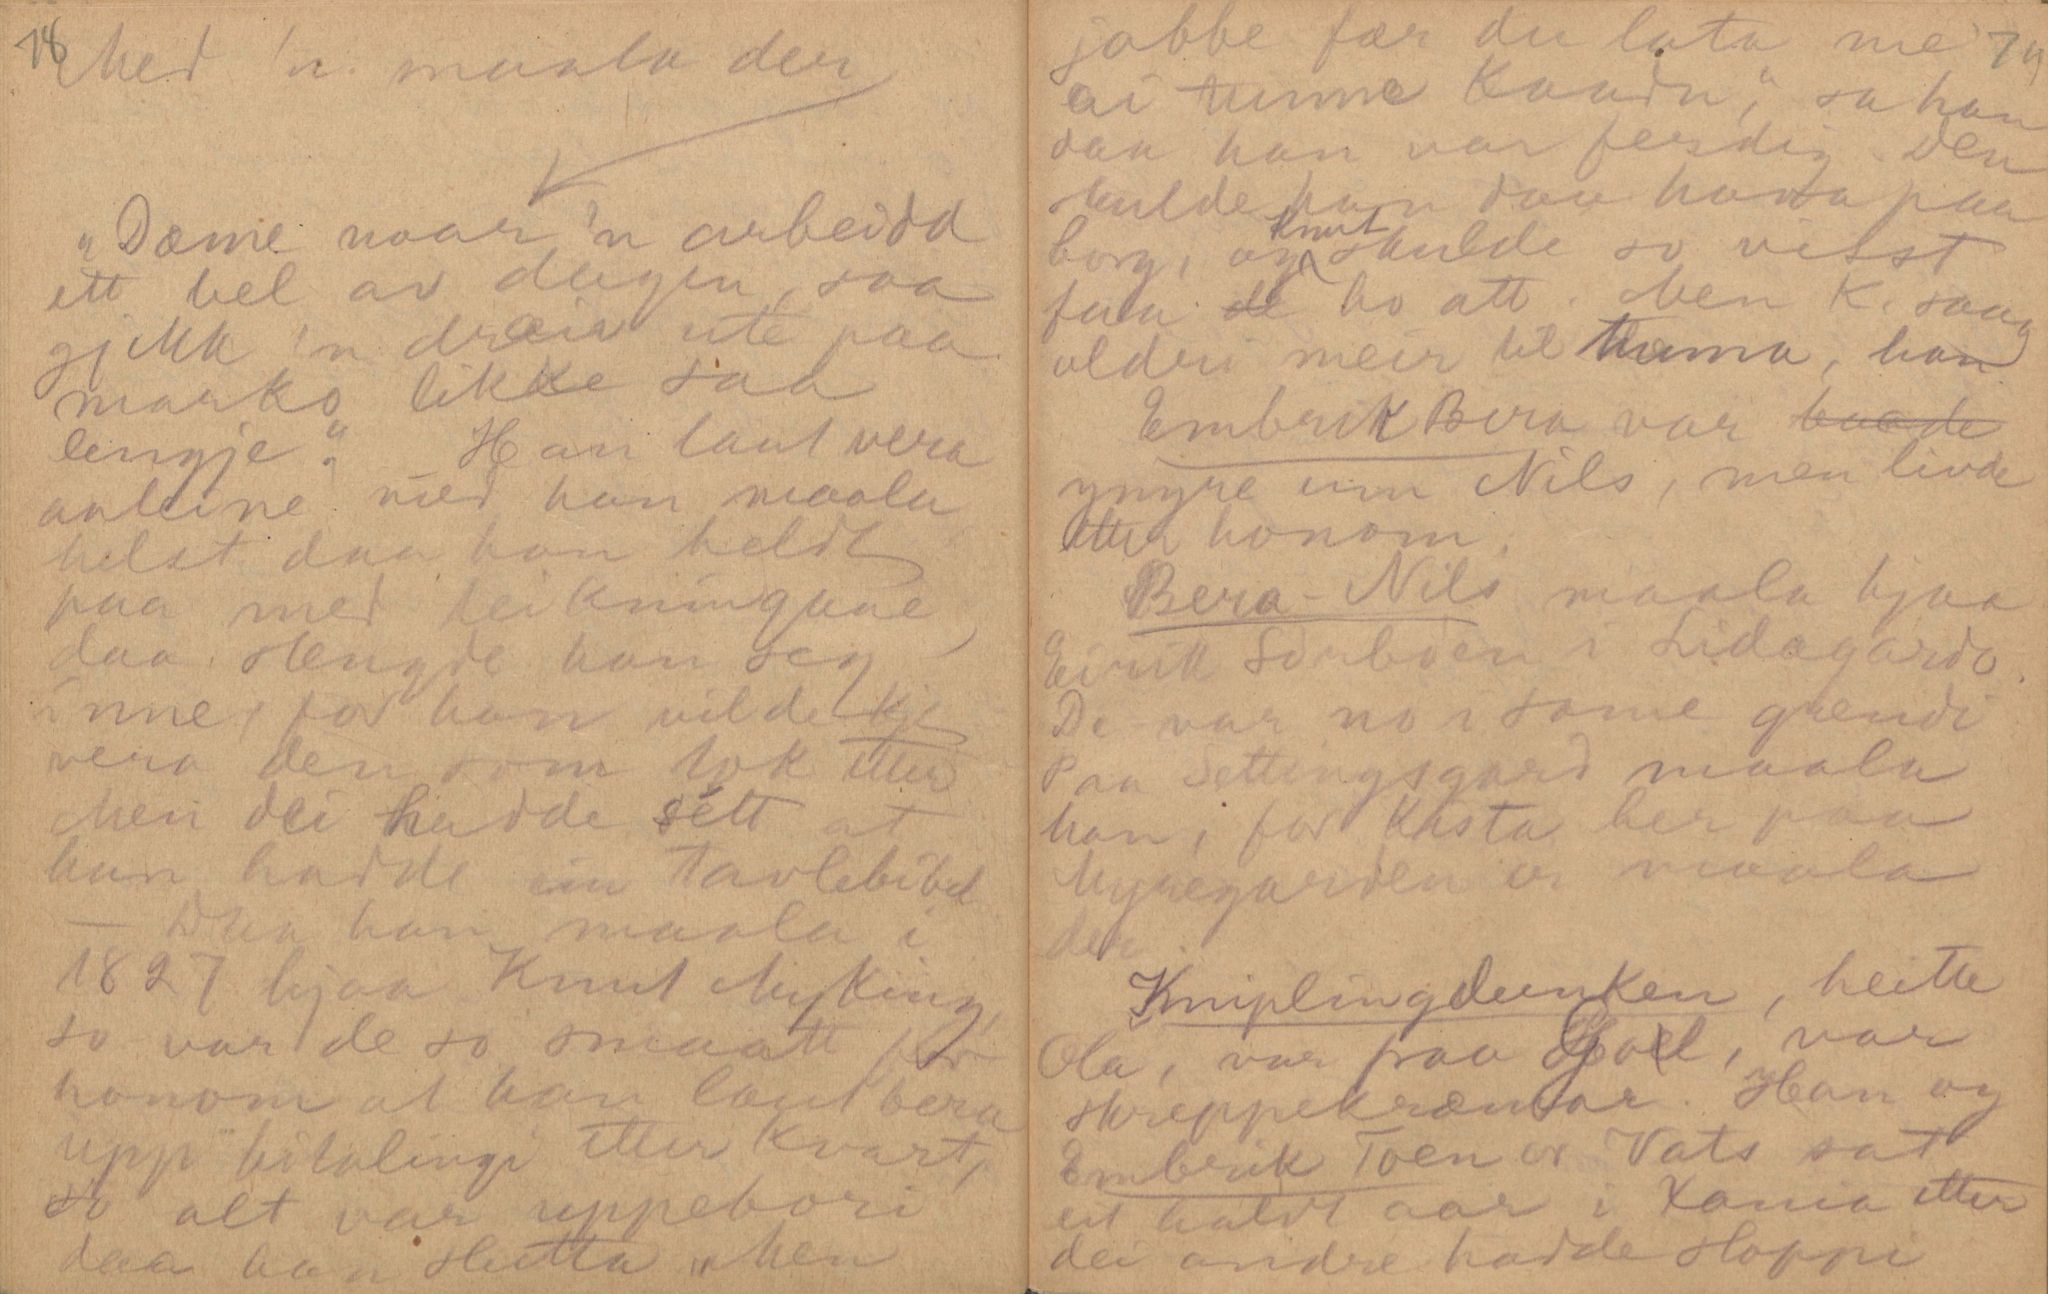 18
Med 'n maala der
"Dæme naar 'n arbeidd
ett bel av dagen, saa
gjikk 'n dreiv ute paa
marko likke saa
lengje". Han laut vera
aaleine med han maala
helst daa han heldt
paa med teikningane,
daa stengde han seg
inne, for han vilde kje
vera den som tok etter
Men dei hadde sétt at
han hadde ein Tavlebibel
— Daa han maala i
1827 hjaa Knut Myking,
so var de so smaatt for
honom at han laut bera
upp bitalingi etter kvart,
so alt var uppebori
daa han slutta "Men
79
jabbe fær du lata me
ei tunne Kaadn", sa han
daa han var ferdig. Den
skulde han daa hava paa
borg, og Knut skulde so visst
faa de ho att. Men K. saag
alderi meir til tunna, han
Embrik Bera var baade
yngre enn Nils, men livde
etter honom.
Bera-Nils maala hjaa
Eirik Sørbøen i Lidagardo.
De var no i same grendi
Paa Settingsgard maala
han, for Kasta her paa
Myregarden er maala
der.
Kniplingdunken, heitte
Ola, var paa Gol, var
skreppekræmar. Han og
Embrik Toen or Vats sat
eit halvt aar i Kania etter
dei andre hadde sloppi